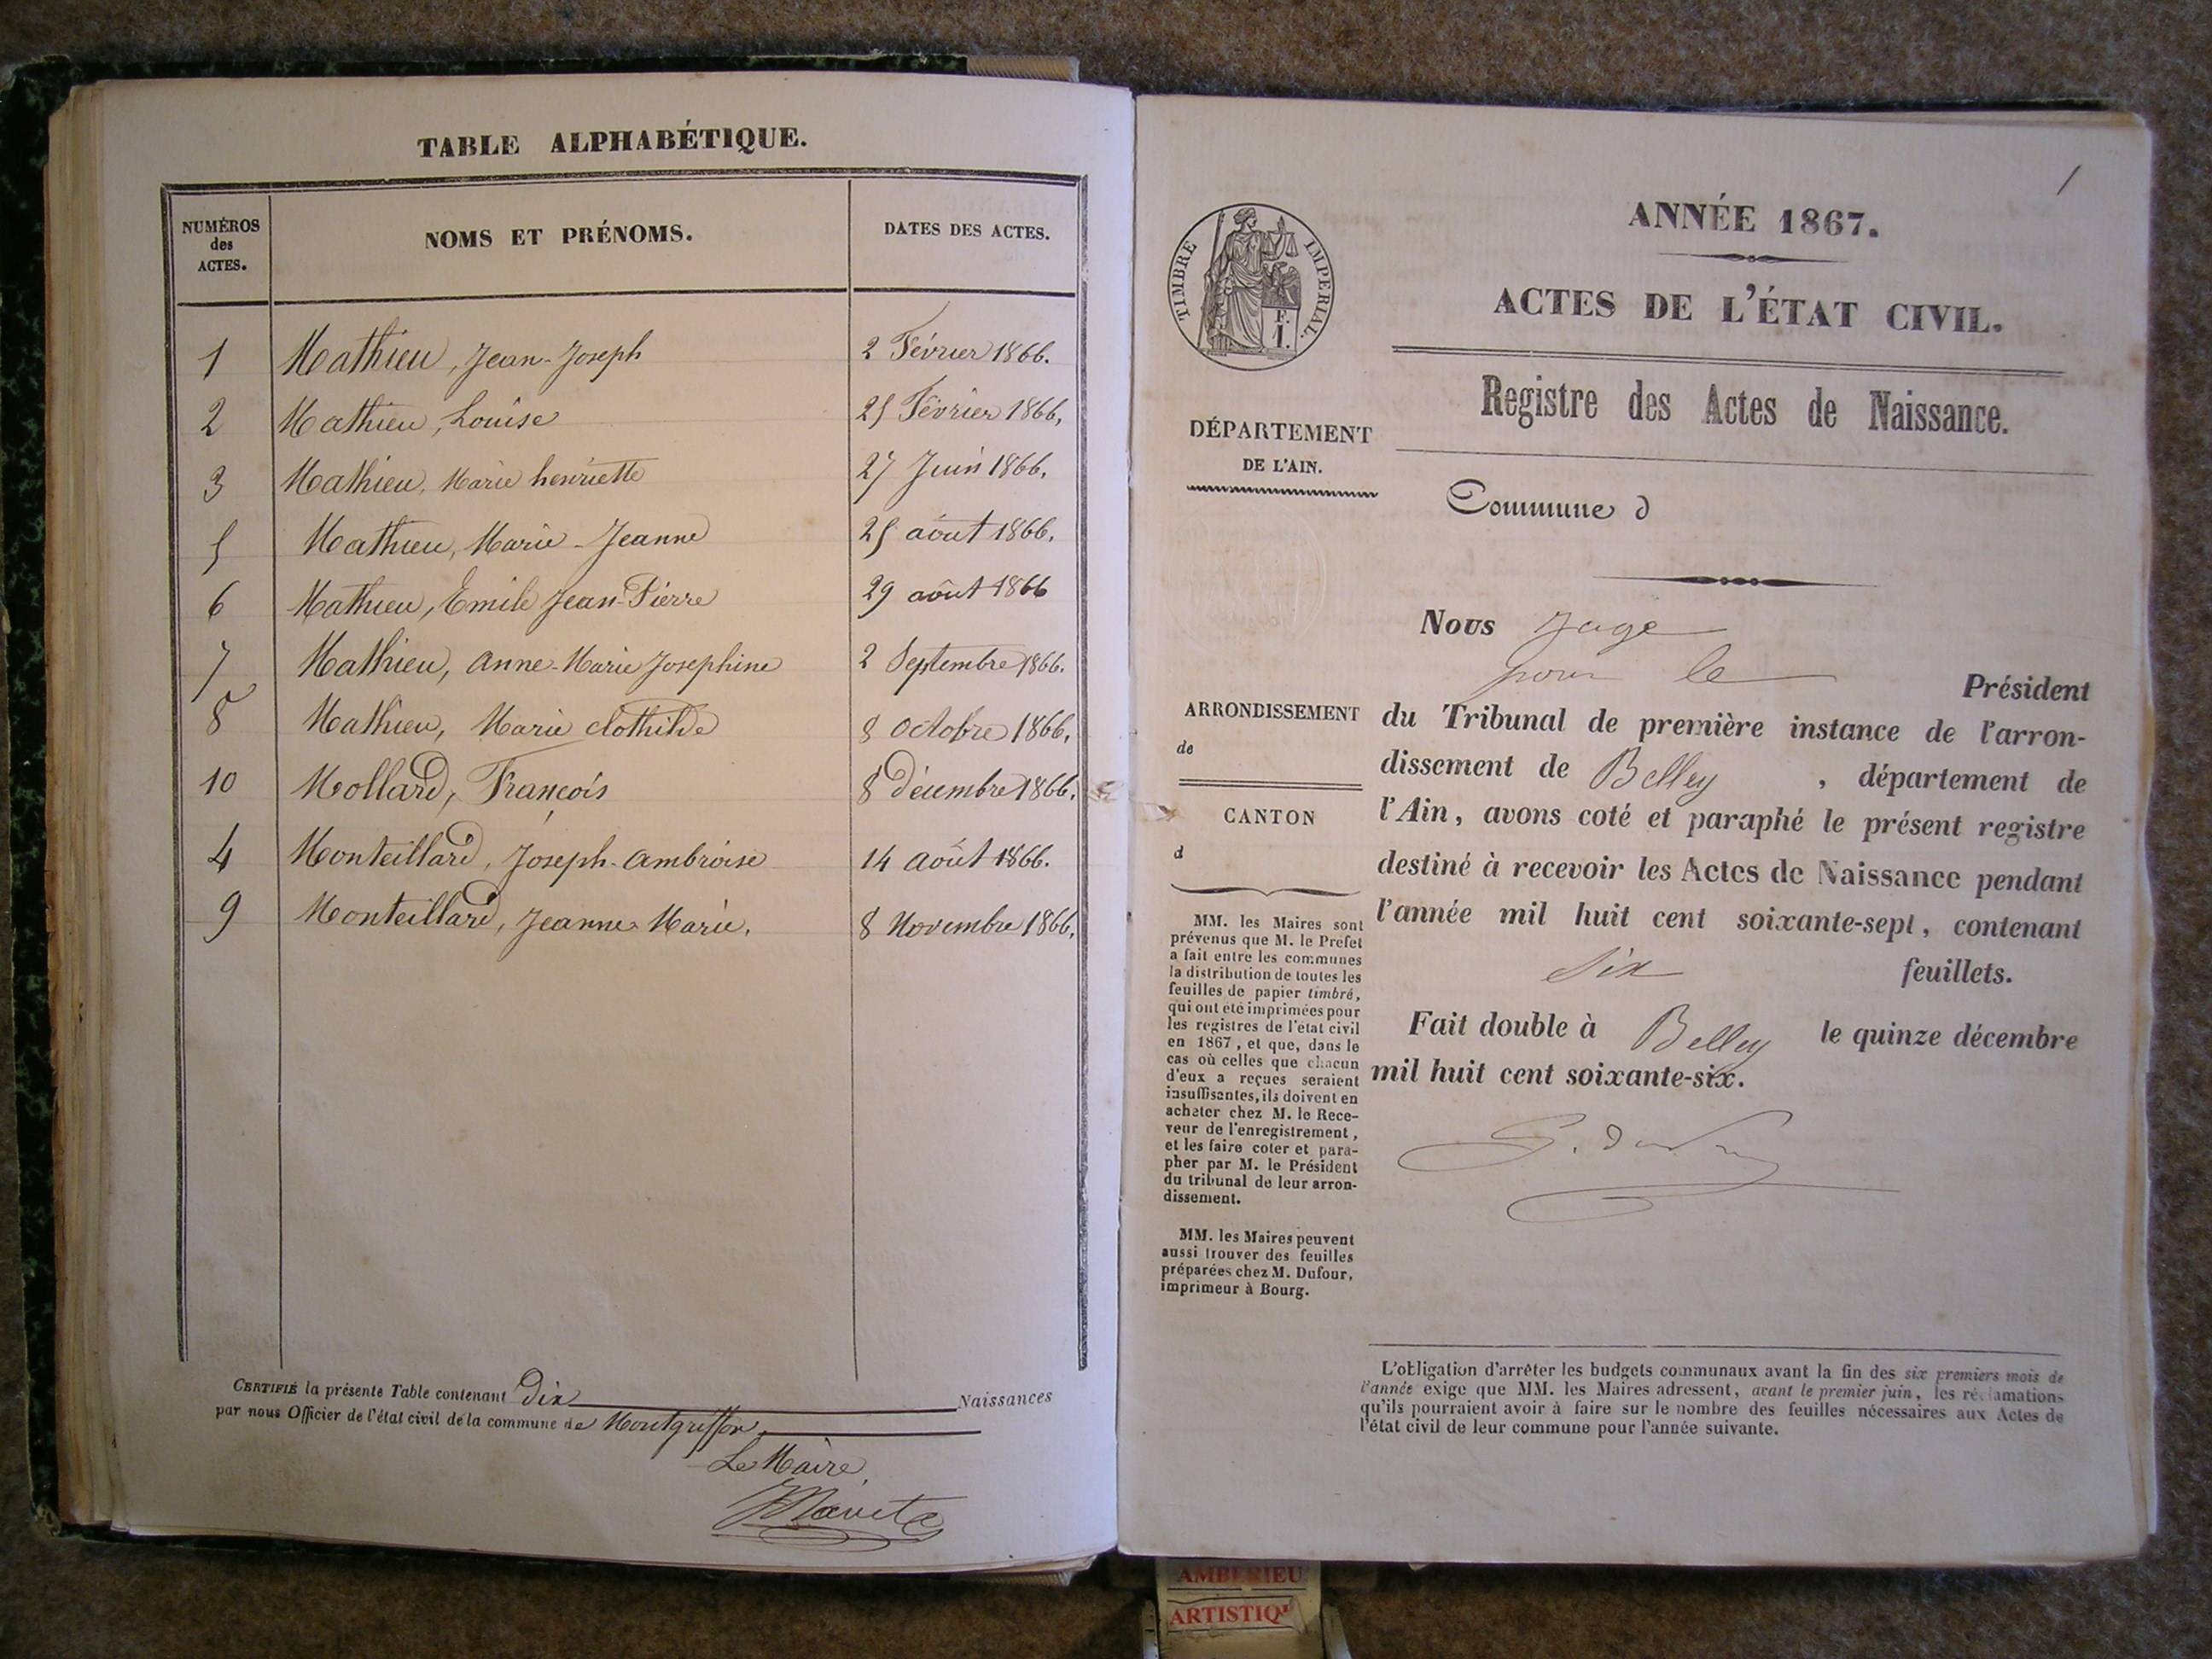 TABLE ALPHABÉTIQUE.
NUMÉROS des ACTES. NOMS ET PRÉNOMS. DATES DES ACTES.
1 Mathieu, Jean-Joseph 2 Février 1866.
2 Mathieu, Louise 25 Février 1866,
3 Mathieu, Marie henriette 27 Juin 1866,
5 Mathieu, Marie-Jeanne 25 août 1866,
6 Mathieu, Emile Jean-Pierre 29 août 1866
7 Mathieu, Anne-Marie Josephine 2 Septembre 1866.
8 Mathieu, Marie clothilde 8 Octobre 1866,
10 Mollard, François 8 Décembre 1866,
4 Monteillard, Joseph-Ambroise 14 août 1866.
9 Monteillard, Jeanne-Marie. 8 Novembre 1866,
CERTIFIÉ la présente Table contenant Dix Naissances
par nous Officier de l'état civil de la commune de Montgriffon
Le Maire,
1
TIMBRE IMPÉRIAL.
F.
1.
ANNÉE 1867.
ACTES DE L'ÉTAT CIVIL.
Registre des Actes de Naissance.
DÉPARTEMENT
DE L'AIN.
Commune d
ARRONDISSEMENT
de
CANTON
d
MM. les Maires sont
prévenus que M. le Préfet
a fait entre les communes
la distribution de toutes les
feuilles de papier timbré,
qui ont été imprimées pour
les registres de l'état civil
en 1867, et que, dans le
cas où celles que chacun
d'eux a reçues seraient
insuffisantes, ils doivent en
acheter chez M. le Rece-
veur de l'enregistrement,
et les faire coter et para-
pher par M. le Président
du tribunal de leur arron-
dissement.
MM. les Maires peuvent
aussi trouver des feuilles
préparées chez M. Dufour,
imprimeur à Bourg.
Nous Juge
pour le Président
du Tribunal de première instance de l'arron-
dissement de Belley, département de
l'Ain, avons coté et paraphé le présent registre
destiné à recevoir les Actes de Naissance pendant
l'année mil huit cent soixante-sept, contenant
six feuillets.
Fait double à Belley le quinze décembre
mil huit cent soixante-six.
L'obligation d'arrêter les budgets communaux avant la fin des six premiers mois de
l'année exige que MM. les Maires adressent, avant le premier juin, les réclamations
qu'ils pourraient avoir à faire sur le nombre des feuilles nécessaires aux Actes de
l'état civil de leur commune pour l'année suivante.
AMBERIEU
ARTISTIQ